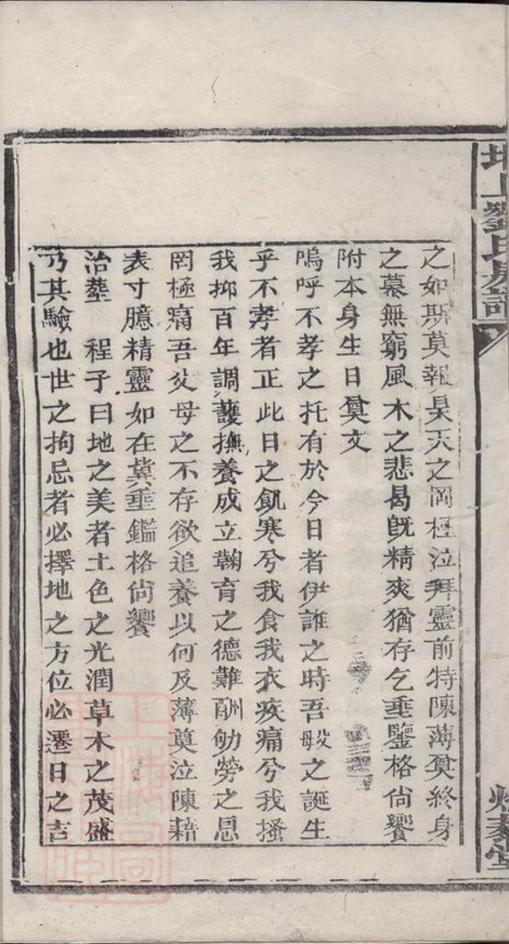 之如斯莫報昊天之罔極泣拜靈前特陳薄奠終身
之慕無窮風木之悲曷旣精爽猶存乞垂鑒格尙饗
附本身生日奠文
嗚呼不孝之托有於今日者伊誰之時吾母之誕生
乎不孝者正此日之飢寒兮我食我衣疾痛兮我搔
我抑百年調護撫養成立鞠育之德難酬劬勞之恩
罔極痛吾父母之不存欲追養以何及薄奠泣陳藉
表寸臆精靈如在冀垂鑑格尙饗
治塟　程子曰地之美者土色之光潤草木之茂盛
乃其驗也世之拘忌者必擇地之方位必遷日之吉
上劉氏房譜
堂